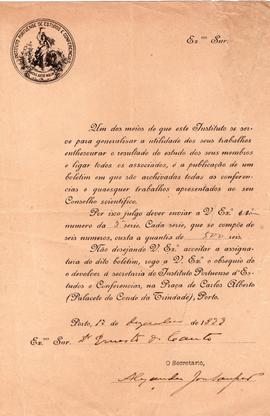 INSTITUTO PORTUENSE DE ESTUDOS E CONFERENCIAS
Ex.mo Snr.
Um dos meios de que este Instituto se ser-
ve para generalisar a utilidade dos seus trabalhos
enthesourar o resultado do estudo dos seus membros
e ligar todos os associados, é a publicação de um
boletim em que são archivadas todas as conferen-
cias e quaesquer trabalhos apresentados ao seu
Conselho scientifico.
Por isso julgo dever enviar a V. Ex.ª
numero da 3ª serie. Cada serie, que se compõe de
seis numeros, custa a quantia de 500 reis.
Não desejando V. Ex.ª acceitar a assigna-
tura do dito boletim, rogo a V. Ex.ª o obsequio de
o devolver á secretaria do Instituto Portuense d'Es-
tudos e Conferencias, na Praça de Carlos Alberto
(Palacete do Conde da Trindade), Porto.
Porto, 12 de Dezembro de 1883
Ex.mo Snr. Dr Ernesto do Canto
O Secretario,